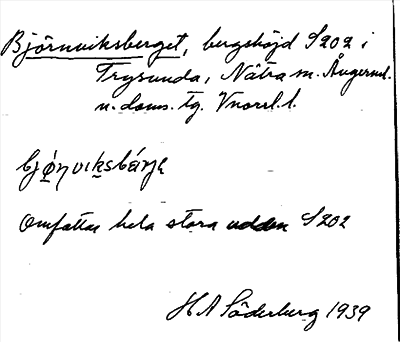 Björnviksberget, bergshöjd S202 i
Trysunda, Nätra sn. Ångerml.
n. doms. tg. Vnorrl. l.
Omfattar hela stora udden S202
H A Söderberg 1939